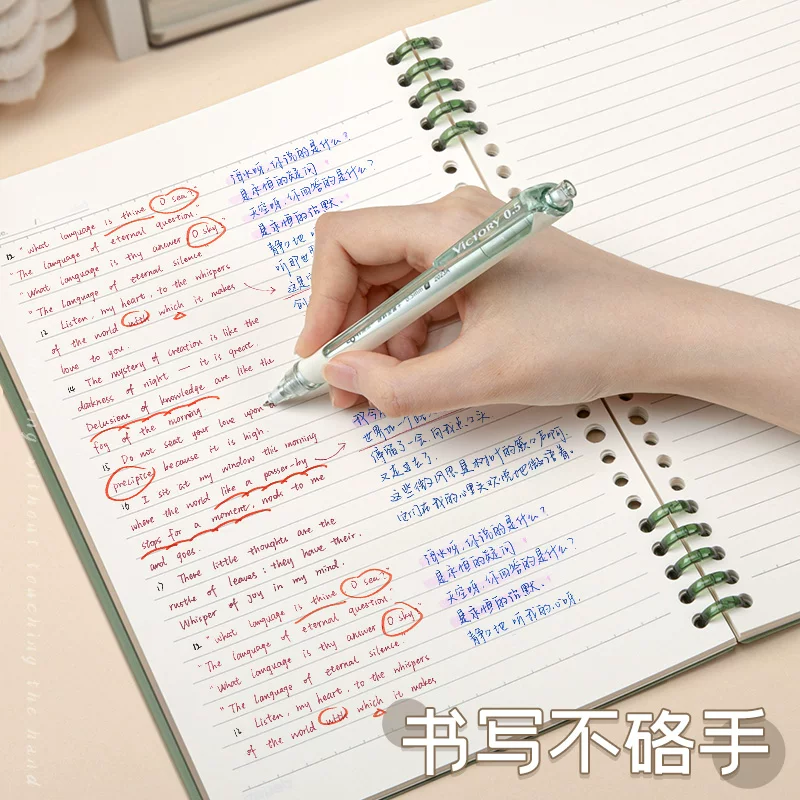 12 "what language is thine O sea?"
"The language of eternal question."
"What language is thy answer O sky
"The Language of eternal silence
13 Listen, my heart, to the whispers
of the world with which it makes
love to you.
14 The mystery of creation is like the
darkness of night — it is great.
Delusions of knowledge are like the
fog of the morning
15 Do not seat your love upon a
precipice because it is high.
16 I sit at my window this morning
where the world like a passer-by
stops for a moment, nods to me
and goes.
17 There little thoughts are the
rustle of leaves; they have their,
Whisper of Joy in my mind.
12 "what language is thine O sea?"
"The language of eternal question"
"What language is thy answer O sky
"The Language of eternal silence
13 Listen, my heart, to the whispers
of the world with which it makes
海水呀,你说的是什么?
是永恒的疑问
天空呀,你回答的是什么?
是永恒的沉默.
静
听那世
这是
世界如一个
停留了一会,向我点点头
又走过去了.
这些微风思是树叶的簌簌声呵.
海水呀,你说的是什么?
是永恒的疑问
天空呀,你回答的是什么?
是永恒的沉默.
静々地 听 我的心呀.
VICTORY 0.5
ing without touching the hand
书写不硌手